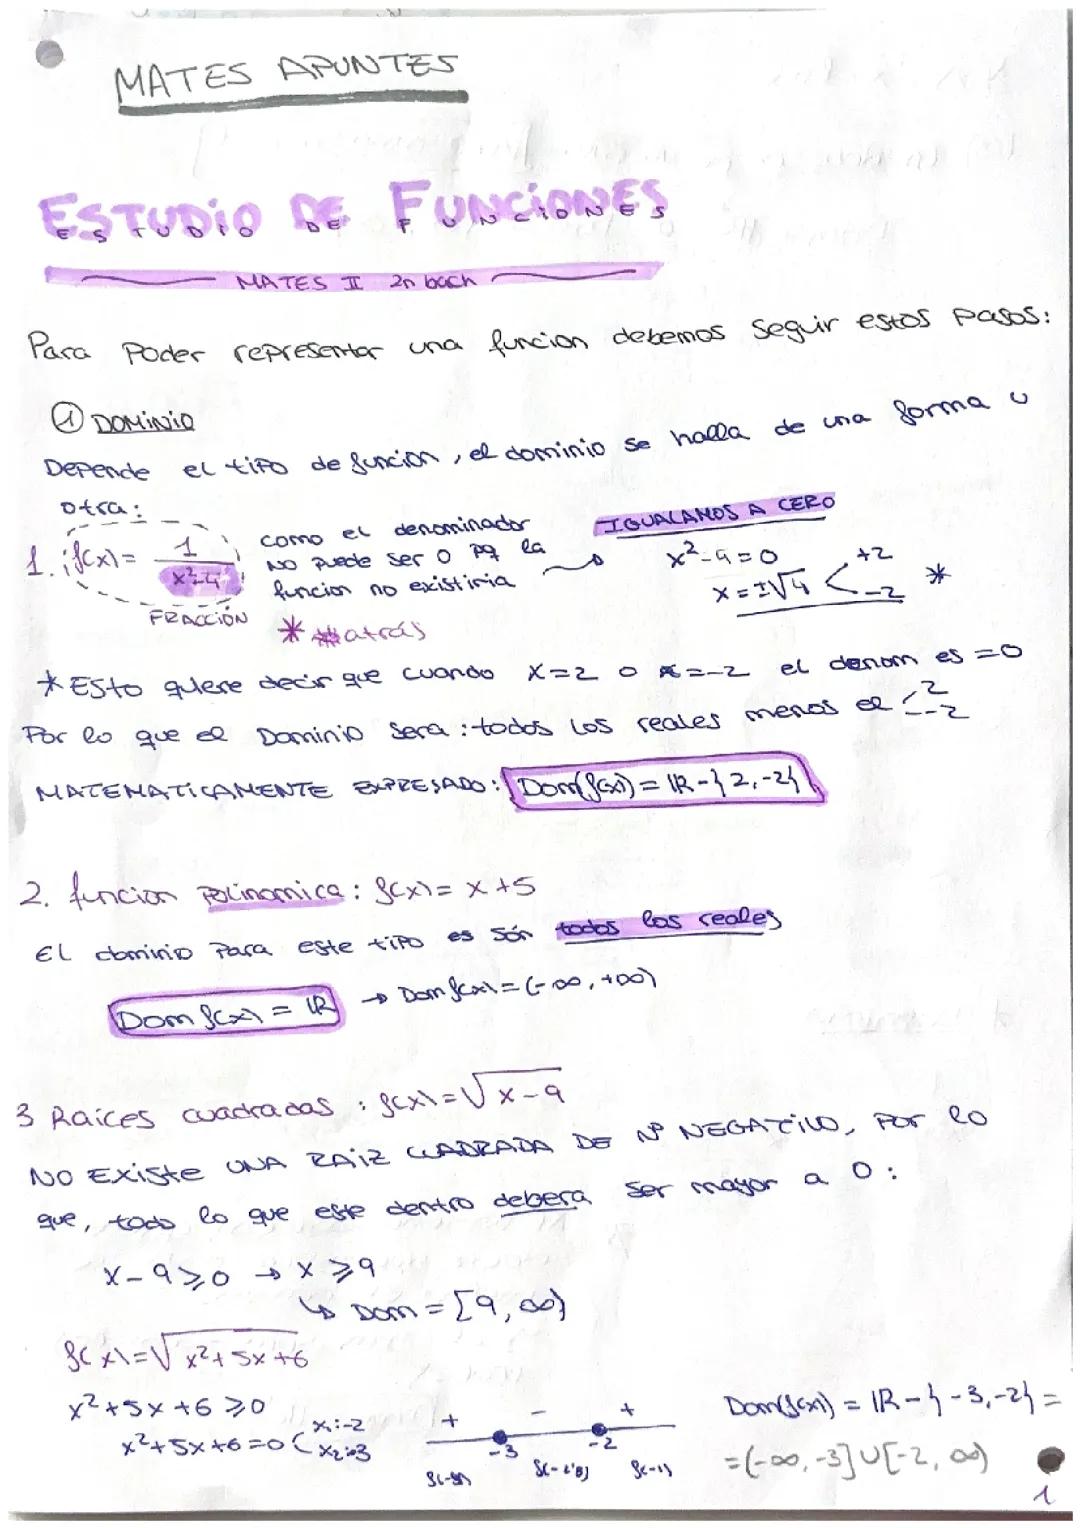 MATES APUNTES
ESTUDIO DE FUNCIONES
MATES II 2n bach
Para Poder representar una funcion debemos seguir estos pasos:
① DOMINIO
Depende el tipo de funcion, el dominio se halla de una forma u
otra:
1. f(x) = 1/(x²-4)
FRACCIÓN
como el denominador
NO puede ser 0 pq la
funcion no existiria
* atrás
IGUALAMOS A CERO
x²-4=0
x=±√4 +2 -2 *
*Esto quiere decir que cuando x=2 o x=-2 el denom es =0
Por lo que el Dominio sera: todos los reales menos el 2 -2
MATEMATICAMENTE EXPRESADO: Dom(f(x)) = ℝ-{2,-2}
2. funcion Polinomica: f(x)= x+5
El dominio para este tipo es són todos los reales
Dom f(x) = ℝ → Dom f(x) = (-∞, +∞)
3 Raices cuadradas: f(x)=√x-9
NO EXiste UNA RAIZ CUADRADA DE Nº NEGATIVO, POR lo
que, todo lo que este dentro debera ser mayor a 0:
x-9≥0 → x≥9
↳ Dom = [9, ∞)
f(x)=√x²+5x+6
x²+5x+6≥0
x²+5x+6=0 x₁:-2 x₂:-3
+ - +
-3 -2
f(-1)
Dom(f(x)) = ℝ-{-3,-2} =
=(-∞,-3]∪[-2, ∞)
1